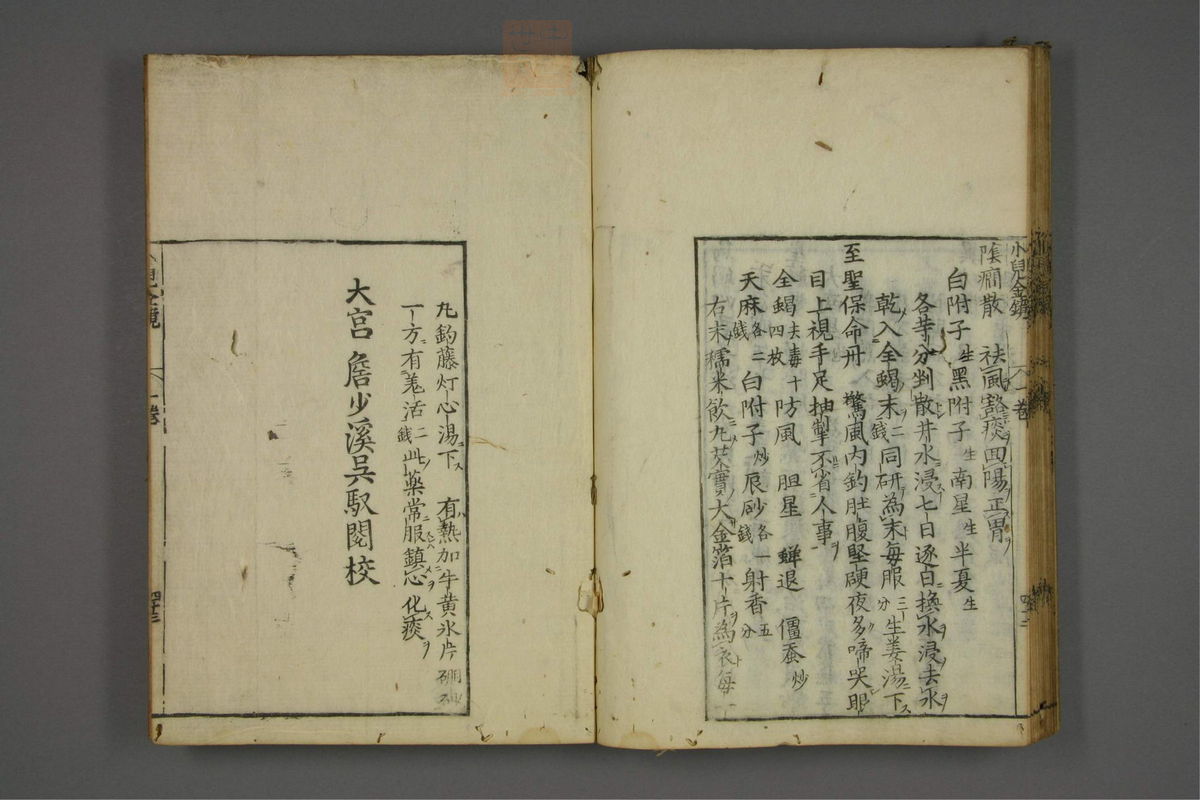 小兒金鏡 一卷
陰癇散 祛風豁痰回陽正胃
白附子生黑附子生南星生半夏生
各等分剉散井水浸七日逐日換水浸去水
乾入全蝎末二錢同研為末毎服三分生姜湯下
至聖保命丹 驚風内釣肚腹堅硬夜多啼哭眼
目上視手足抽掣不省人事
全蝎去毒十四枚防風 胆星 蟬退 僵蚕炒
天麻各二錢白附子炒辰砂各一錢射香五分
右末糯米飲丸芡實大金箔十片為衣毎一
丸釣藤灯心湯下 有熱加牛黄氷片硼砂
一方有羗活二錢此藥常服鎮心化痰
大宮 詹少溪呉馭閲校
一卷